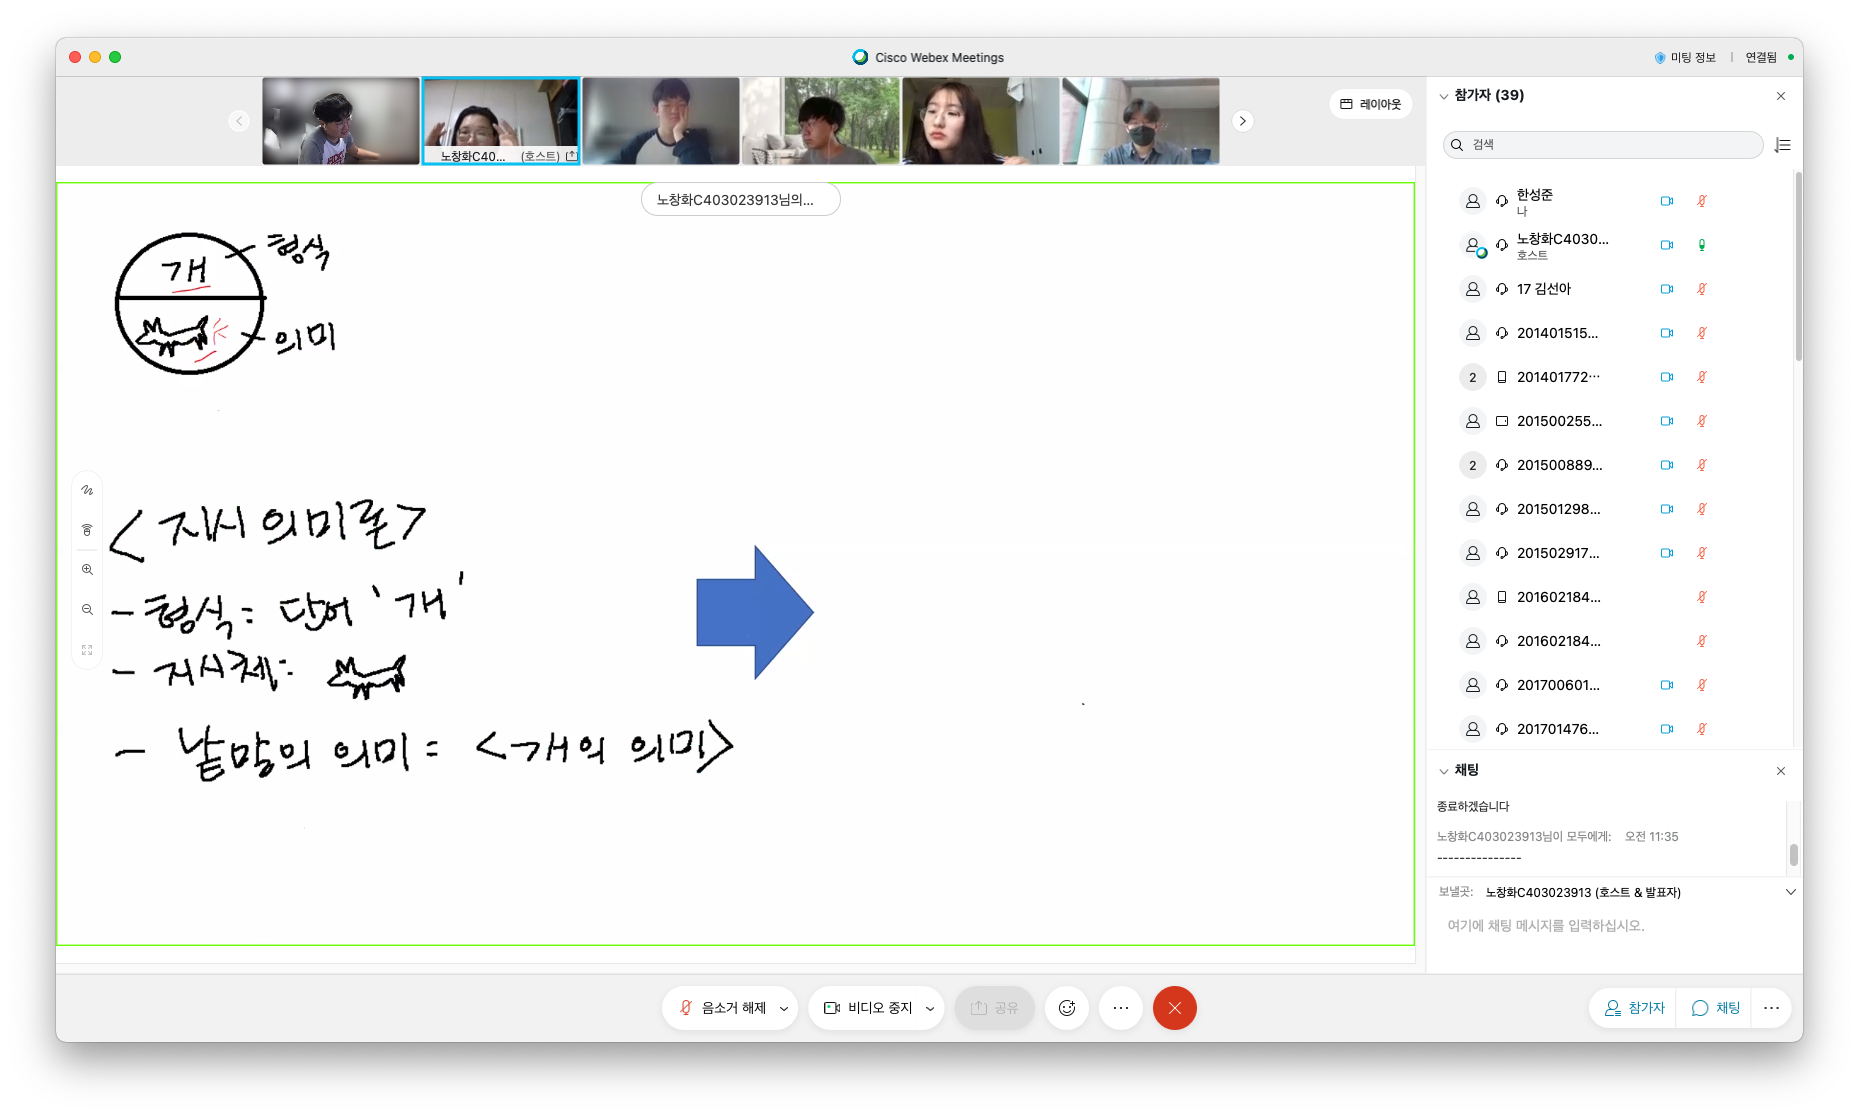 Cisco Webex Meetings
미팅 정보
연결됨
노창화C40... (호스트)
레이아웃
노창화C403023913님의...
개
형식
의미
<지시 의미론>
- 형식 = 단어 '개'
- 지시체 =
- 낱말의 의미 = <개의 의미>
참가자 (39)
검색
한성준
나
노창화C4030...
호스트
17 김선아
201401515...
2 201401772...
201500255...
2 201500889...
201501298...
201502917...
201602184...
201602184...
201700601...
201701476...
채팅
종료하겠습니다
노창화C403023913님이 모두에게: 오전 11:35
---------------
보낼곳: 노창화C403023913 (호스트 & 발표자)
여기에 채팅 메시지를 입력하십시오.
음소거 해제
비디오 중지
공유
참가자
채팅